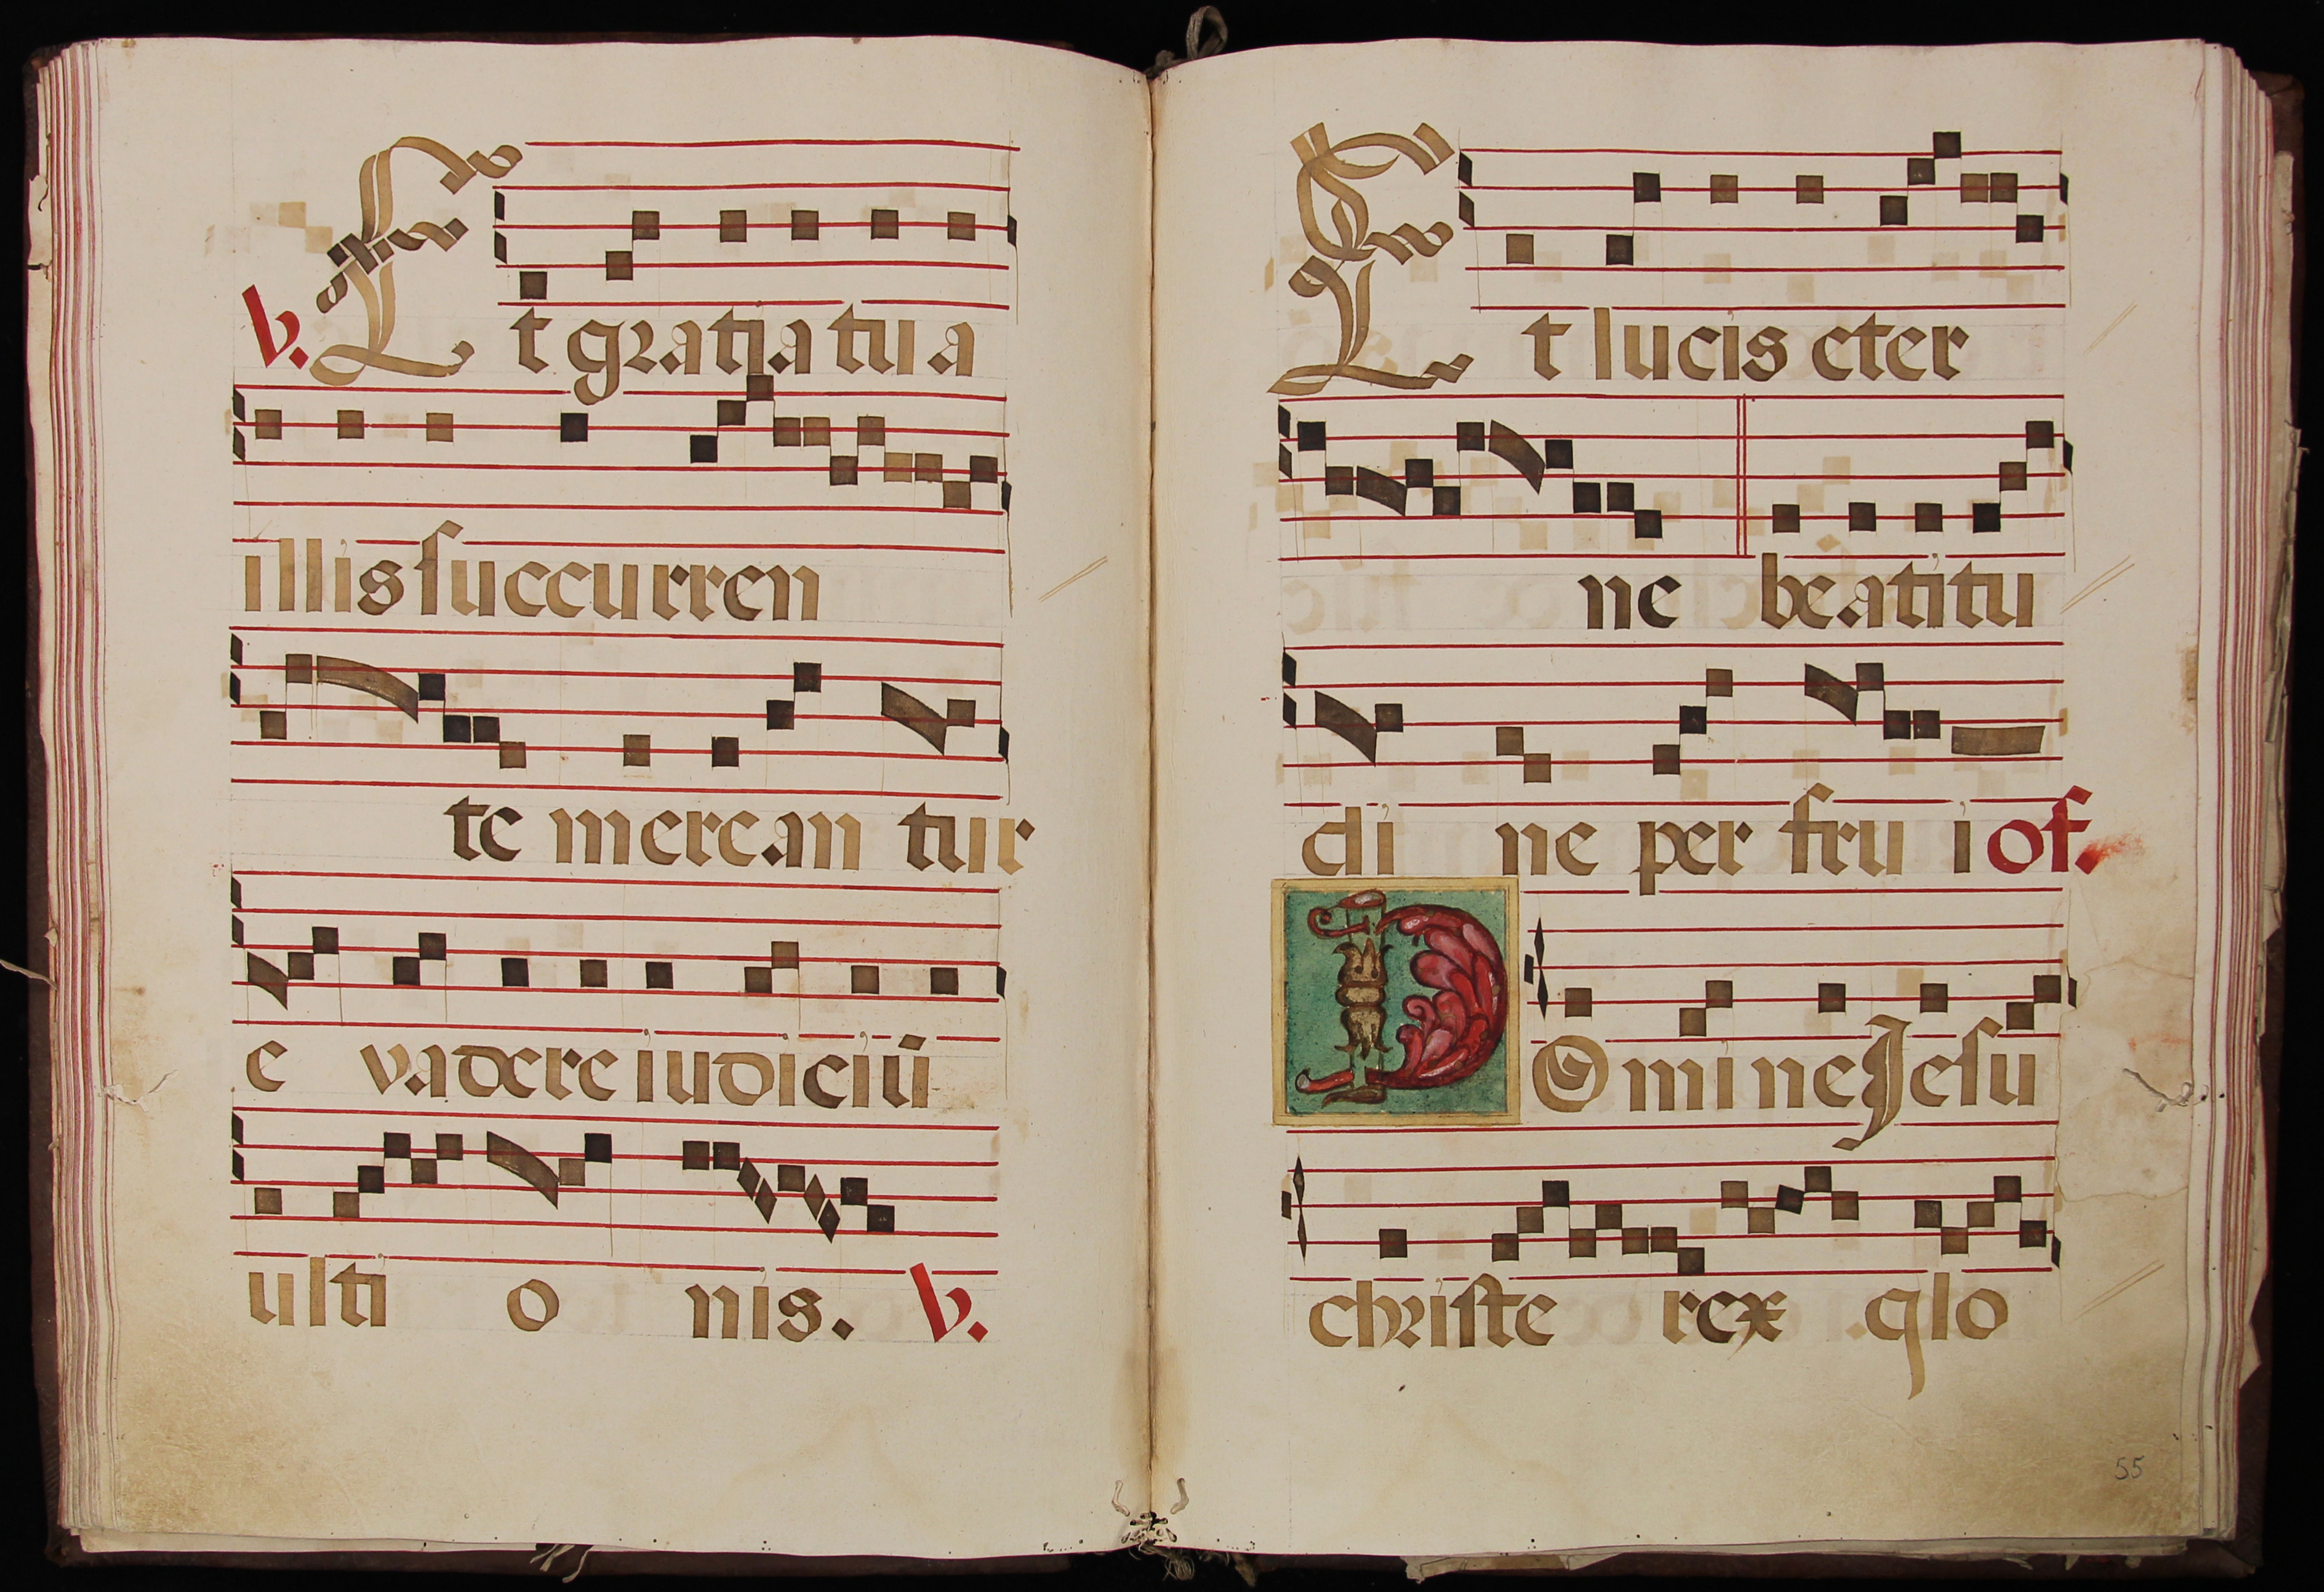 V. Et gratia tua
illis succurren
te merean tur
e vadere iudiciū
ulti o nis. V.
Et lucis eter
ne beatitu
di ne per fru i of.
DOmine Jesu
christe rex glo
55